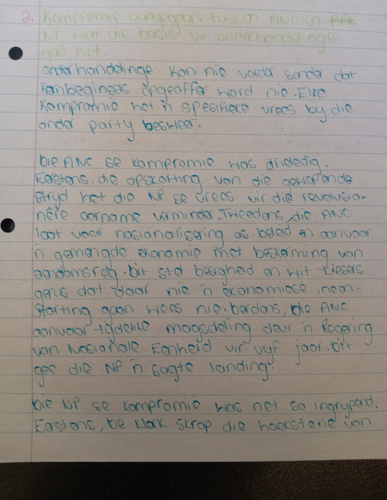 2. Kompromie aangegaan tussen ANC en
NP wat die basis vir onderhandelinge
gelê het.
Onderhandelinge kon nie verder sonder dat
kernbeginsels opgeoffer word nie. Elke
kompromie het 'n spesifieke vrees by die
ander party besweer.
Die ANC se kompromie was drieledig.
Eerstens, die opskorting van die gewapende
stryd het die NP se vrees vir die revolusio-
nêre oorname verminder. Tweedens, die ANC
laat vaar nasionalisering as beleid en aanvaar
'n gemengde ekonomie met beskerming van
eiendomsreg. Dit stel besigheid en wit kiesers
gerus dat daar nie 'n ekonomiese ineen-
storting gaan wees nie. Derdens, die ANC
aanvaar tydelike magsdeling deur 'n Regering
van Nasionale Eenheid vir vyf jaar. Dit
gee die NP 'n sagte landing.
Die NP se kompromie was net so ingrypend.
Eerstens, De Klerk skrap die hoekstene van